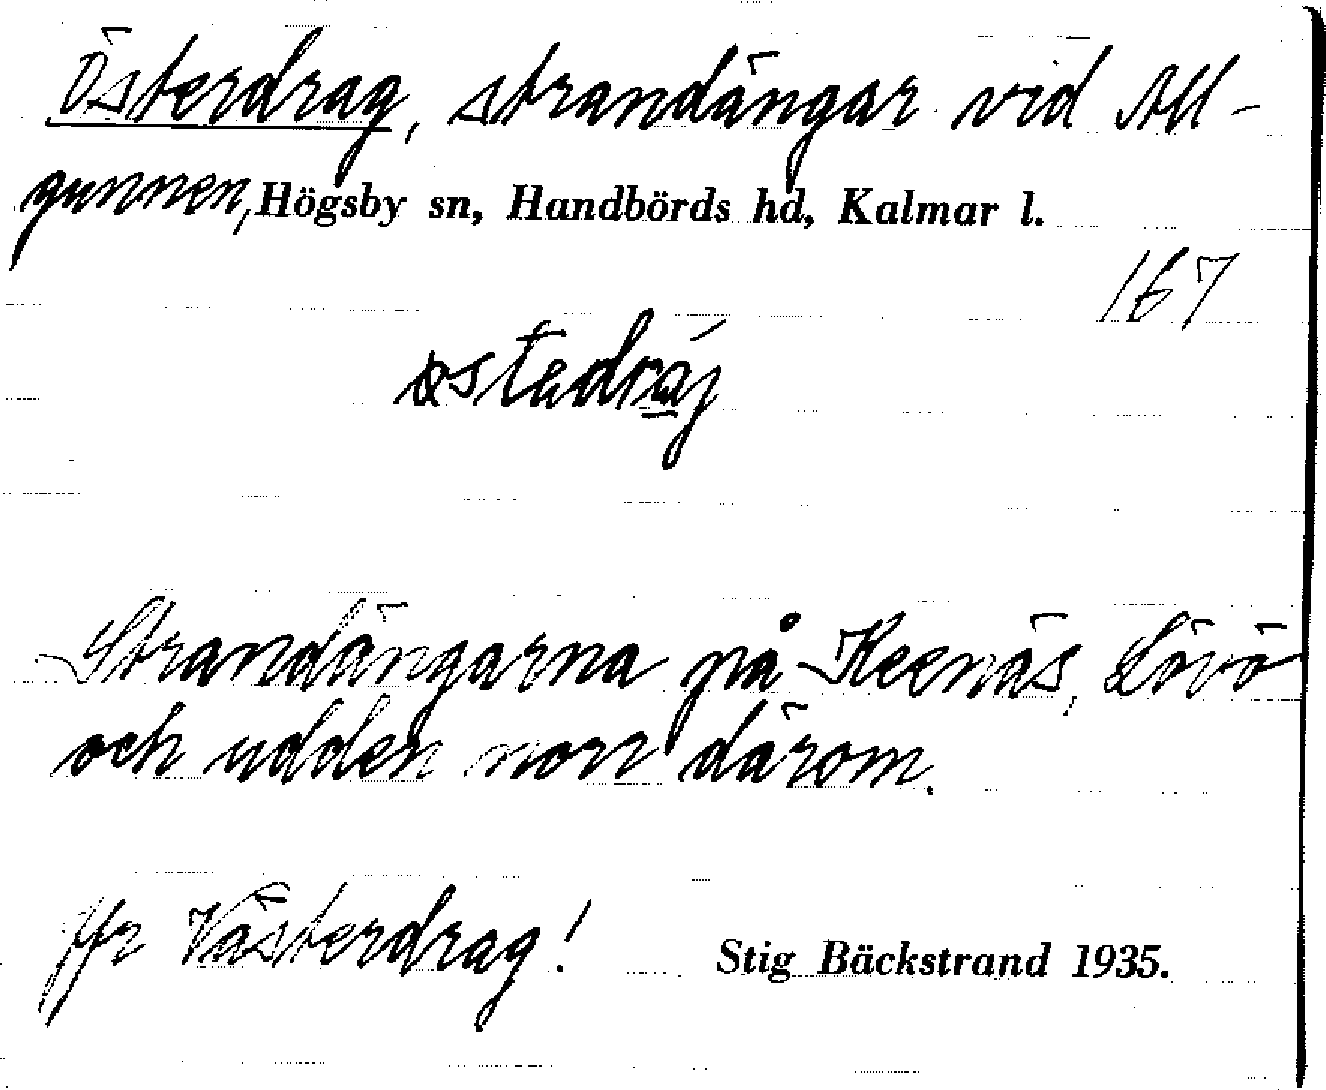 Österdrag, strandängar vid All-
gunnen, Högsby sn, Handbörds hd, Kalmar l.
167
Strandängarna på Keenäs, Lövö
och udden norr därom.
Jfr Västerdrag! Stig Bäckstrand 1935.